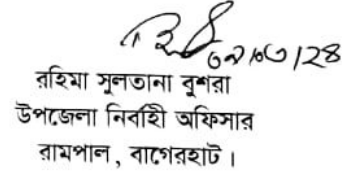 ০৯/০৩/২৪
রহিমা সুলতানা বুশরা
উপজেলা নির্বাহী অফিসার
রামপাল, বাগেরহাট।